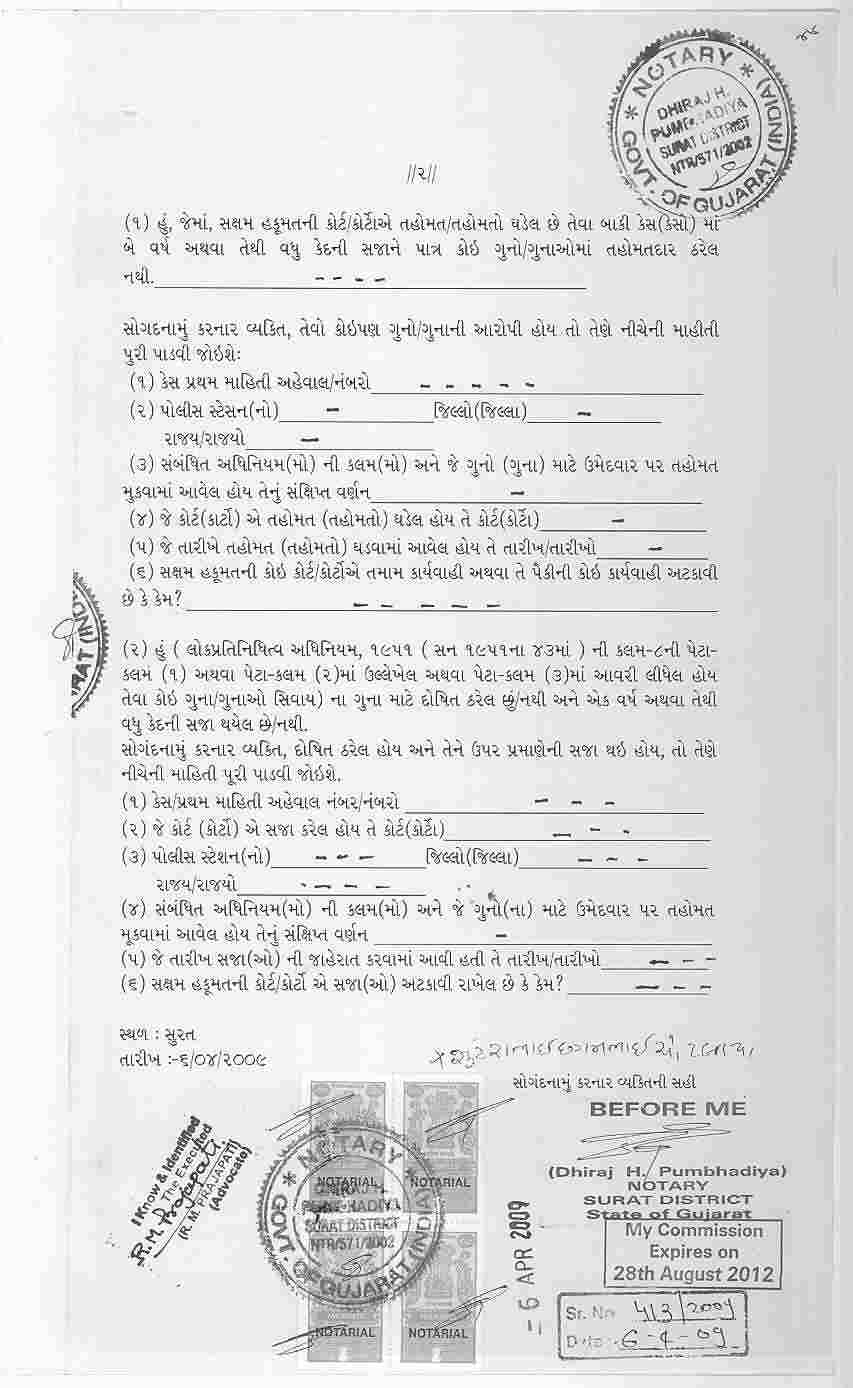 ૪૮
* NOTARY *
DHIRAJ H.
PUMBHADIYA
SURAT DISTRICT
NTR/571/2002
GOVT. OF GUJARAT (INDIA)
//૨//
(૧) હું, જેમાં, સક્ષમ હકૂમતની કોર્ટ/કોર્ટોએ તહોમત/તહોમતો ઘડેલ છે તેવા બાકી કેસ(કેસો) માં
બે વર્ષ અથવા તેથી વધુ કેદની સજાને પાત્ર કોઇ ગુનો/ગુનાઓમાં તહોમતદાર ઠરેલ
નથી. - - - -
સોગદનામું કરનાર વ્યકિત, તેવો કોઇપણ ગુનો/ગુનાની આરોપી હોય તો તેણે નીચેની માહીતી
પુરી પાડવી જોઇશેઃ
(૧) કેસ પ્રથમ માહિતી અહેવાલ/નંબરો - - - - -
(૨) પોલીસ સ્ટેસન(નો) - જિલ્લો(જિલ્લા) -
રાજય/રાજયો -
(૩) સંબંધિત અધિનિયમ(મો) ની કલમ(મો) અને જે ગુનો (ગુના) માટે ઉમેદવાર પર તહોમત
મુકવામાં આવેલ હોય તેનું સંક્ષિપ્ત વર્ણન -
(૪) જે કોર્ટ(કાર્ટો) એ તહોમત (તહોમતો) ઘડેલ હોય તે કોર્ટ(કોર્ટો) -
(૫) જે તારીખે તહોમત (તહોમતો) ઘડવામાં આવેલ હોય તે તારીખ/તારીખો -
(૬) સક્ષમ હકૂમતની કોઇ કોર્ટ/કોર્ટોએ તમામ કાર્યવાહી અથવા તે પૈકીની કોઇ કાર્યવાહી અટકાવી
છે કે કેમ? - - - - -
(૨) હું ( લોકપ્રતિનિધિત્વ અધિનિયમ, ૧૯૫૧ ( સન ૧૯૫૧ના ૪૩માં ) ની કલમ-૮ની પેટા-
કલમ (૧) અથવા પેટા-કલમ (૨)માં ઉલ્લેખેલ અથવા પેટા-કલમ (૩)માં આવરી લીધેલ હોય
તેવા કોઇ ગુના/ગુનાઓ સિવાય) ના ગુના માટે દોષિત ઠરેલ છું/નથી અને એક વર્ષ અથવા તેથી
વધુ કેદની સજા થયેલ છે/નથી.
સોગંદનામું કરનાર વ્યકિત, દોષિત ઠરેલ હોય અને તેને ઉપર પ્રમાણેની સજા થઇ હોય, તો તેણે
નીચેની માહિતી પૂરી પાડવી જોઇશે.
(૧) કેસ/પ્રથમ માહિતી અહેવાલ નંબર/નંબરો - - -
(૨) જે કોર્ટ (કોર્ટો) એ સજા કરેલ હોય તે કોર્ટ(કોર્ટો) - - -
(૩) પોલીસ સ્ટેશન(નો) - - - જિલ્લો(જિલ્લા) - - -
રાજય/રાજયો - - - -
(૪) સંબંધિત અધિનિયમ(મો) ની કલમ(મો) અને જે ગુનો(ના) માટે ઉમેદવાર પર તહોમત
મૂકવામાં આવેલ હોય તેનું સંક્ષિપ્ત વર્ણન -
(૫) જે તારીખ સજા(ઓ) ની જાહેરાત કરવામાં આવી હતી તે તારીખ/તારીખો - - -
(૬) સક્ષમ હકૂમતની કોર્ટ/કોર્ટો એ સજા(ઓ) અટકાવી રાખેલ છે કે કેમ? - - -
સ્થળ : સુરત
તારીખ :-૬/૦૪/૨૦૦૯
સોગંદનામું કરનાર વ્યકિતની સહી
BEFORE ME
(Dhiraj H. Pumbhadiya)
NOTARY
SURAT DISTRICT
State of Gujarat
My Commission
Expires on
28th August 2012
Sr. No 413/2009
Date: 6-4-09
- 6 APR 2009
I Know & Identified
The Executed
R.M. Prajapati
(R. M. PRAJAPATI)
(Advocate)
NOTARIAL NOTARIAL
* NOTARY *
DHIRAJ H.
PUMBHADIYA
SURAT DISTRICT
NTR/571/2002
GOVT. OF GUJARAT (INDIA)
NOTARIAL NOTARIAL